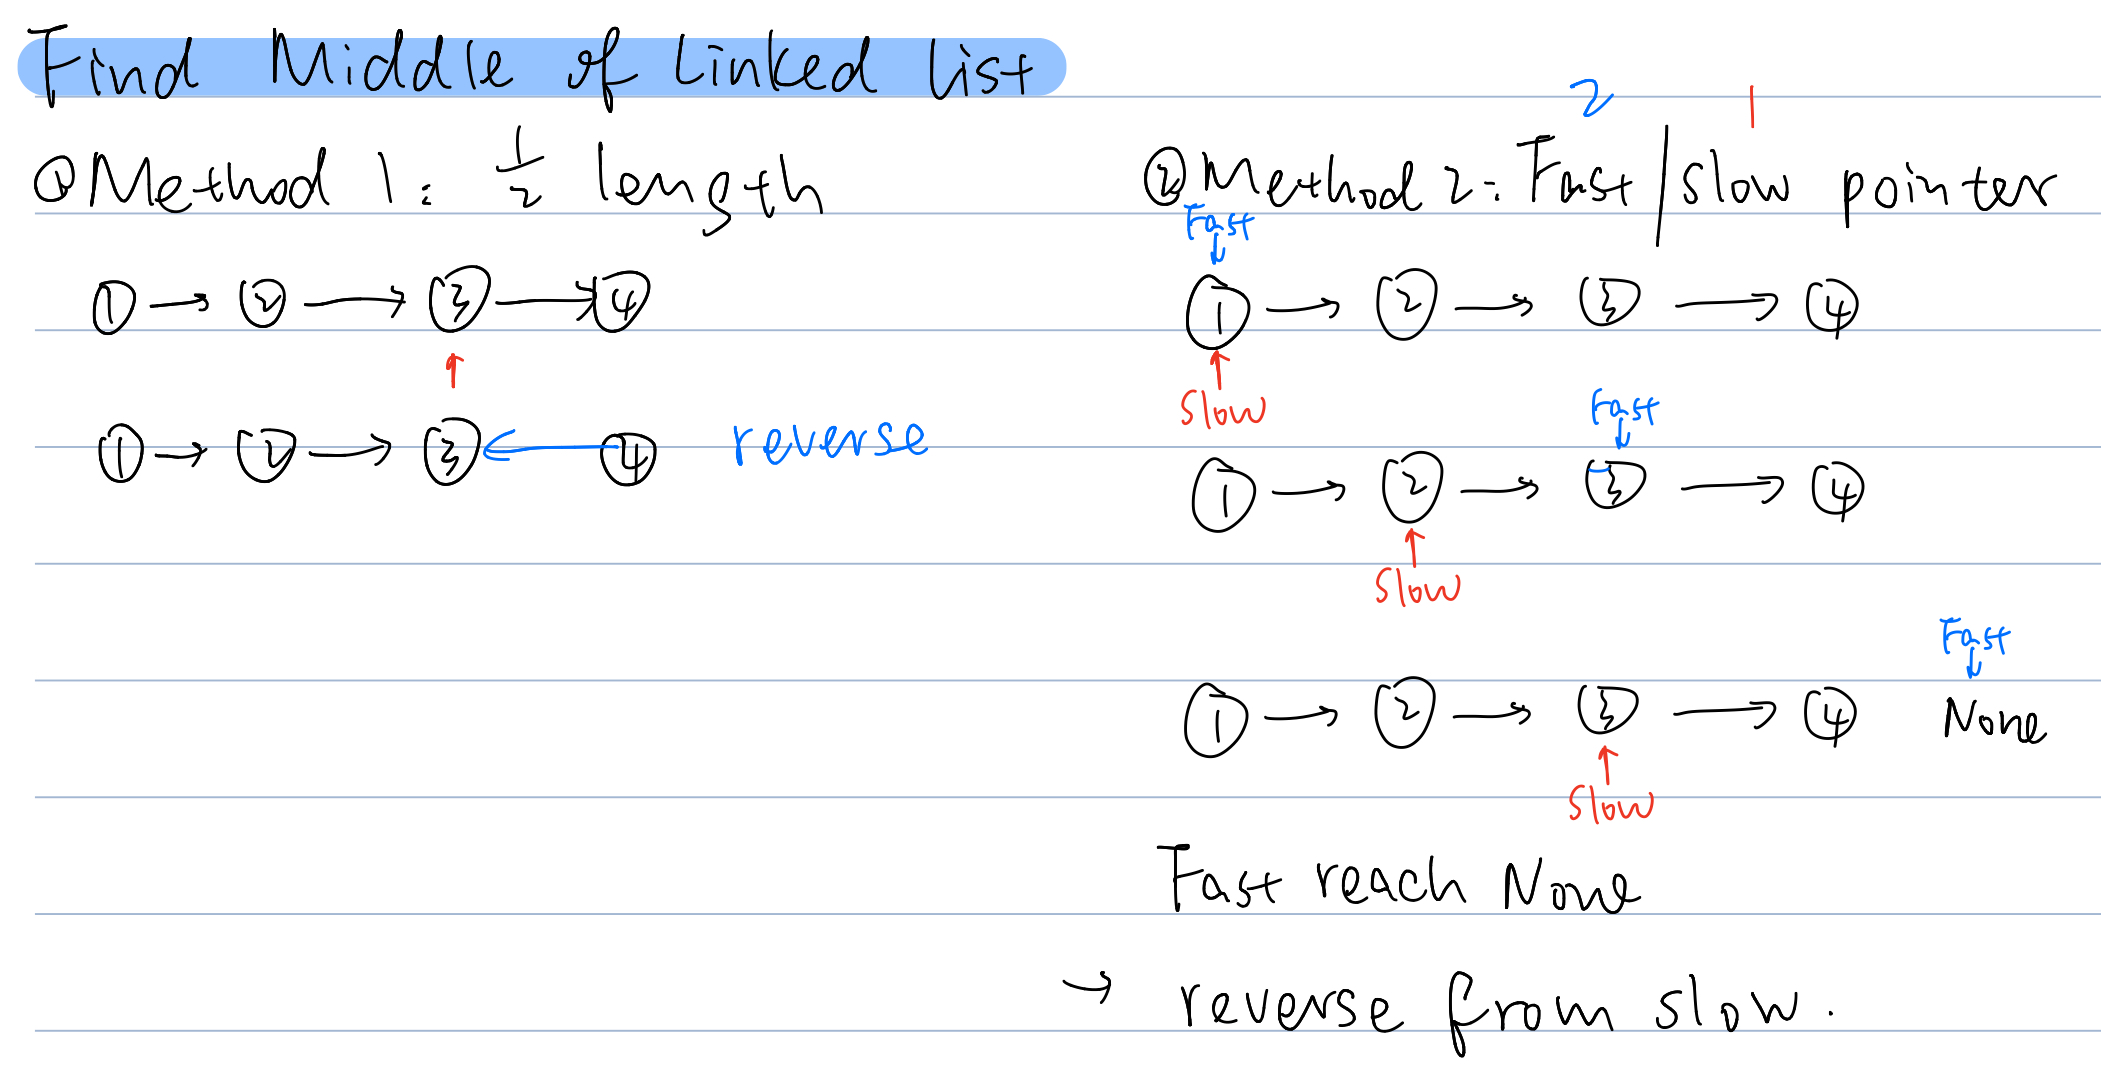 Find Middle of Linked List
① Method 1: 1/2 length
① → ② → ③ → ④
↑
① → ② → ③ ← ④ reverse
2 1
② Method 2: Fast/slow pointer
Fast
↓
① → ② → ③ → ④
↑
slow
Fast
↓
① → ② → ③ → ④
↑
slow
Fast
↓
① → ② → ③ → ④ None
↑
slow
Fast reach None
→ reverse from slow.